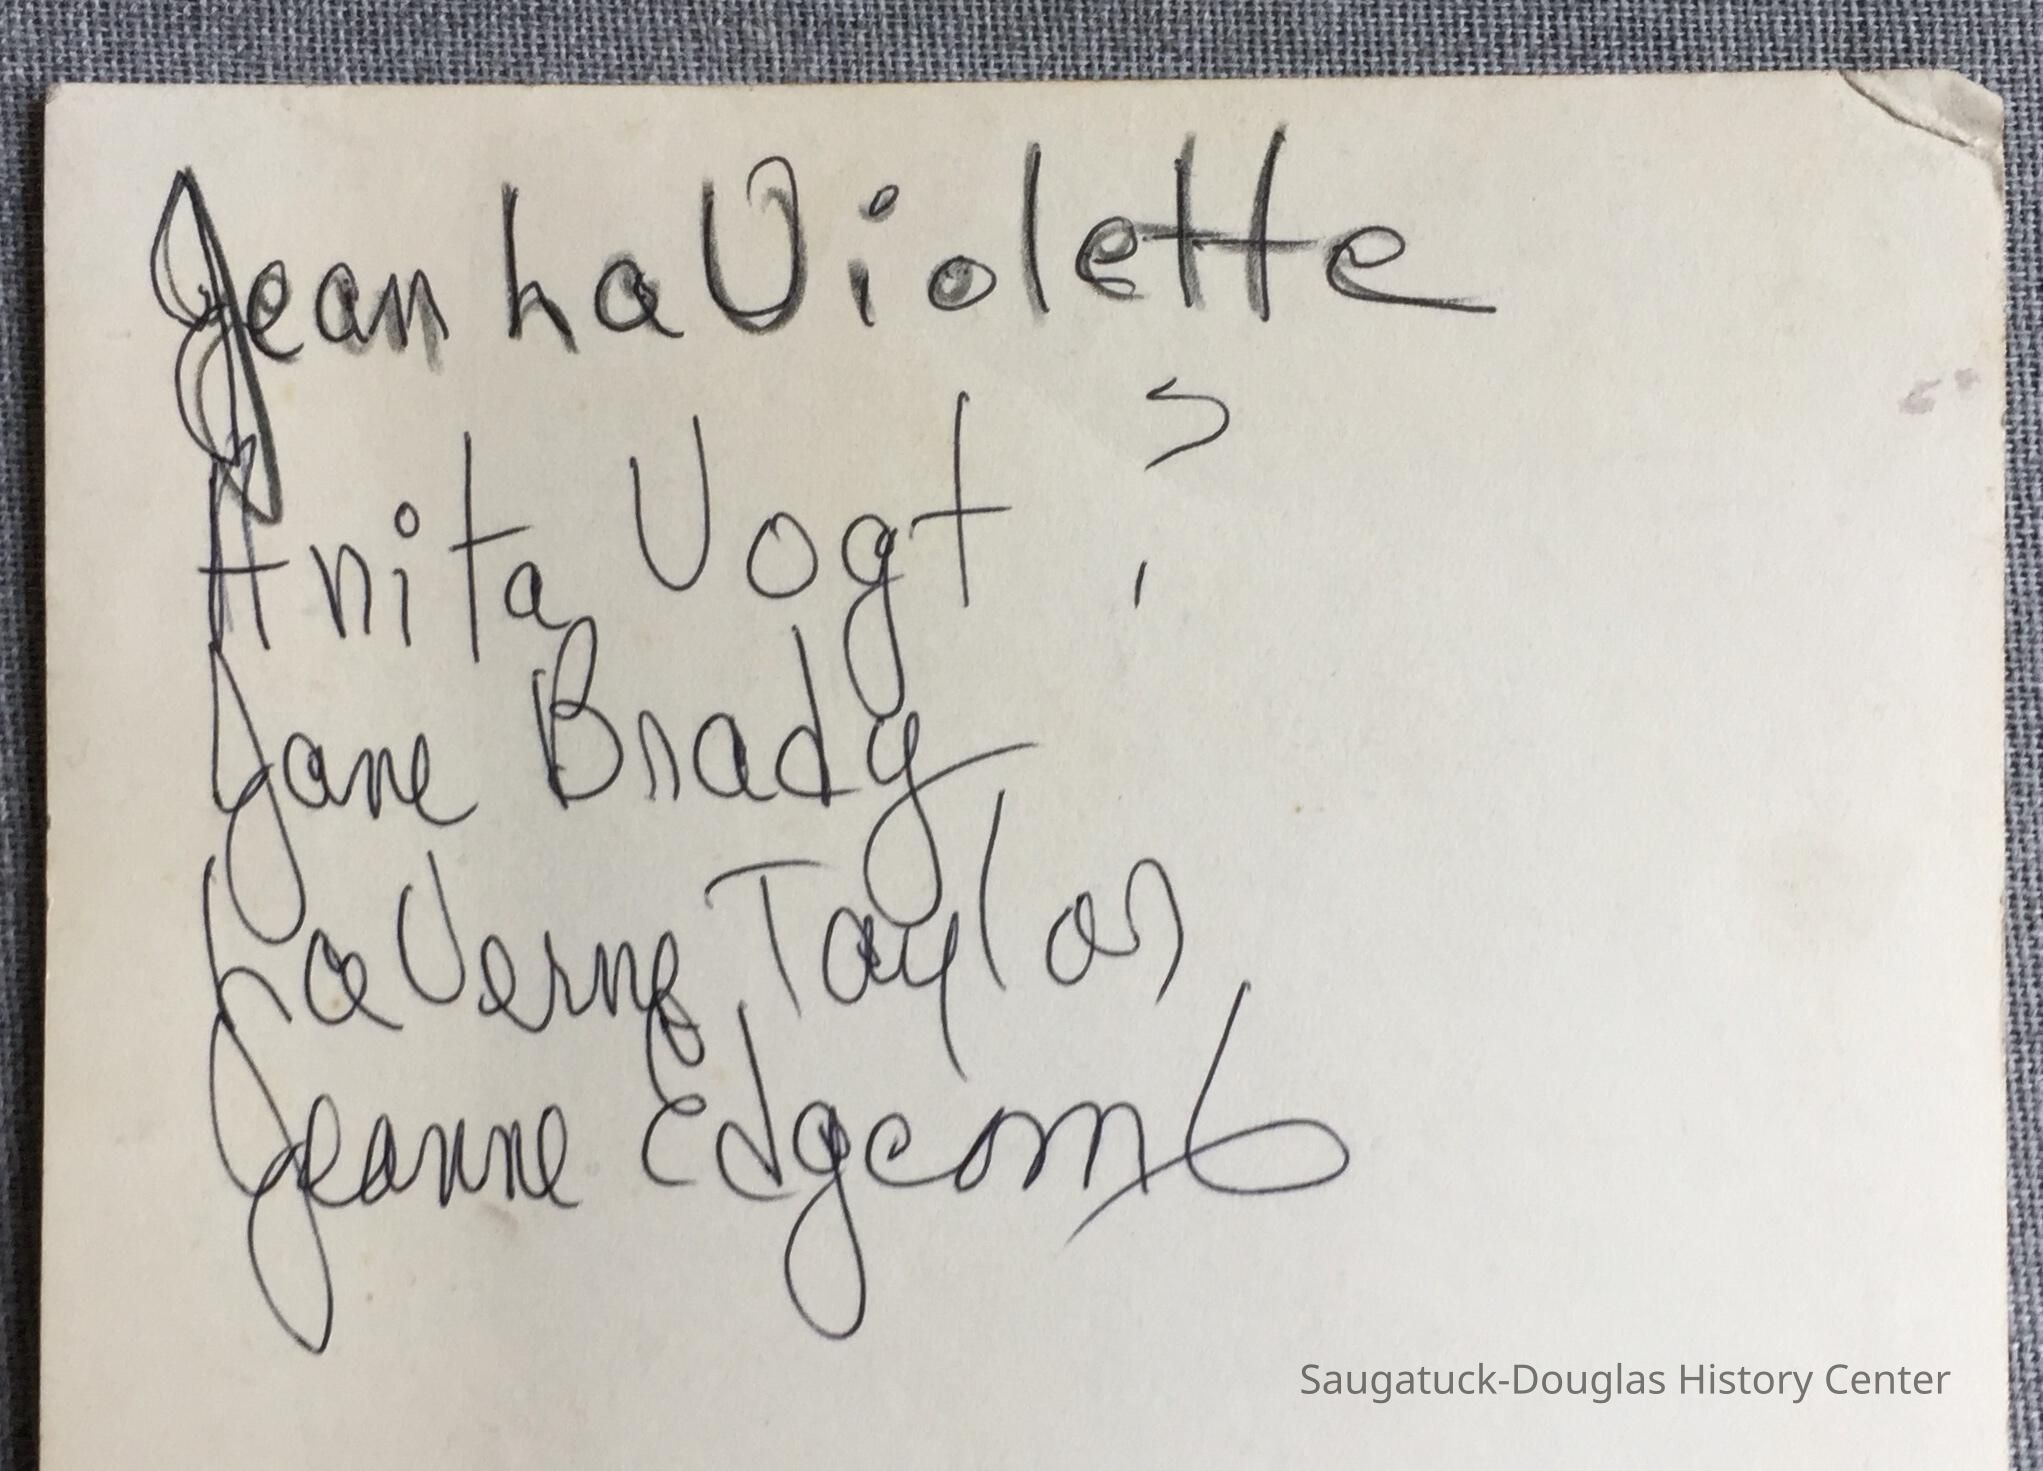 Jean LaViolette
Anita Vogt ?
Jane Brady
LaVerne Taylor
Jeanne Edgcomb
Saugatuck-Douglas History Center